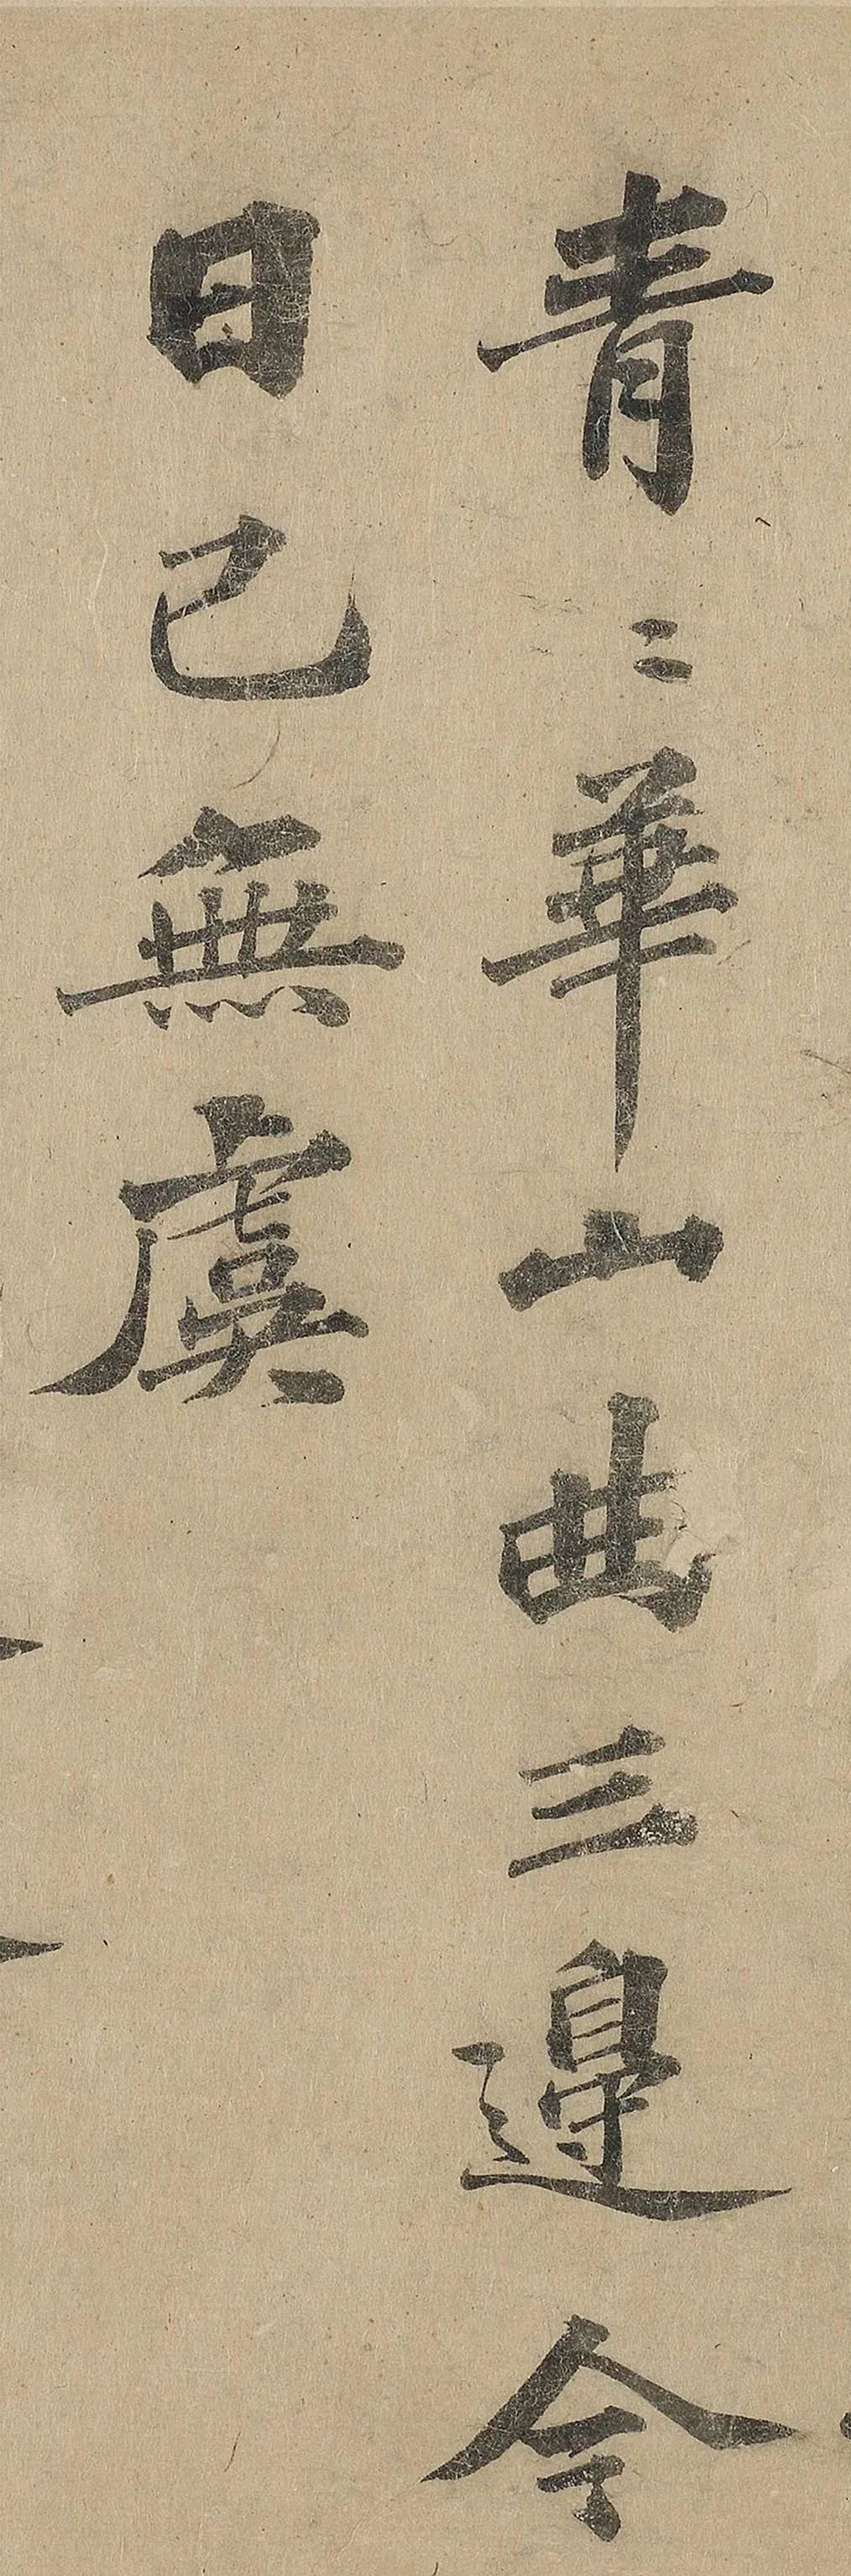 青〻華山曲三邊今
日已無虞